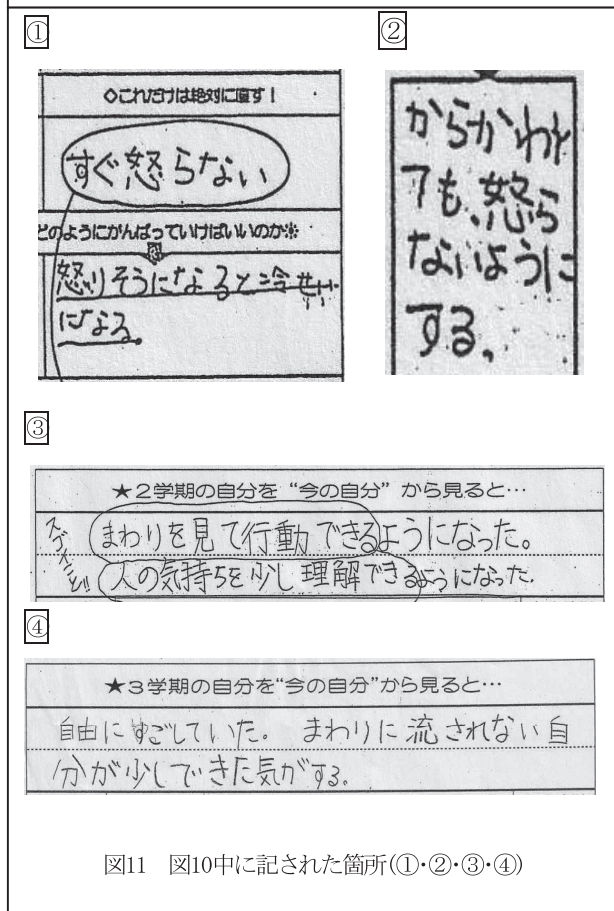 ①
◇これだけは絶対に直す！
すぐ怒らない
どのようにがんばっていけばいいのか※
怒りそうになると冷せい
になる。
②
からかわれ
ても、怒ら
ないように
する。
③
★2学期の自分を“今の自分”から見ると…
まわりを見て行動できるようになった。
人の気持ちを少し理解できるようになった.
④
★3学期の自分を“今の自分”から見ると…
自由にすごしていた。 まわりに流されない自
分が少しできた気がする。
図11 図10中に記された箇所(①・②・③・④)